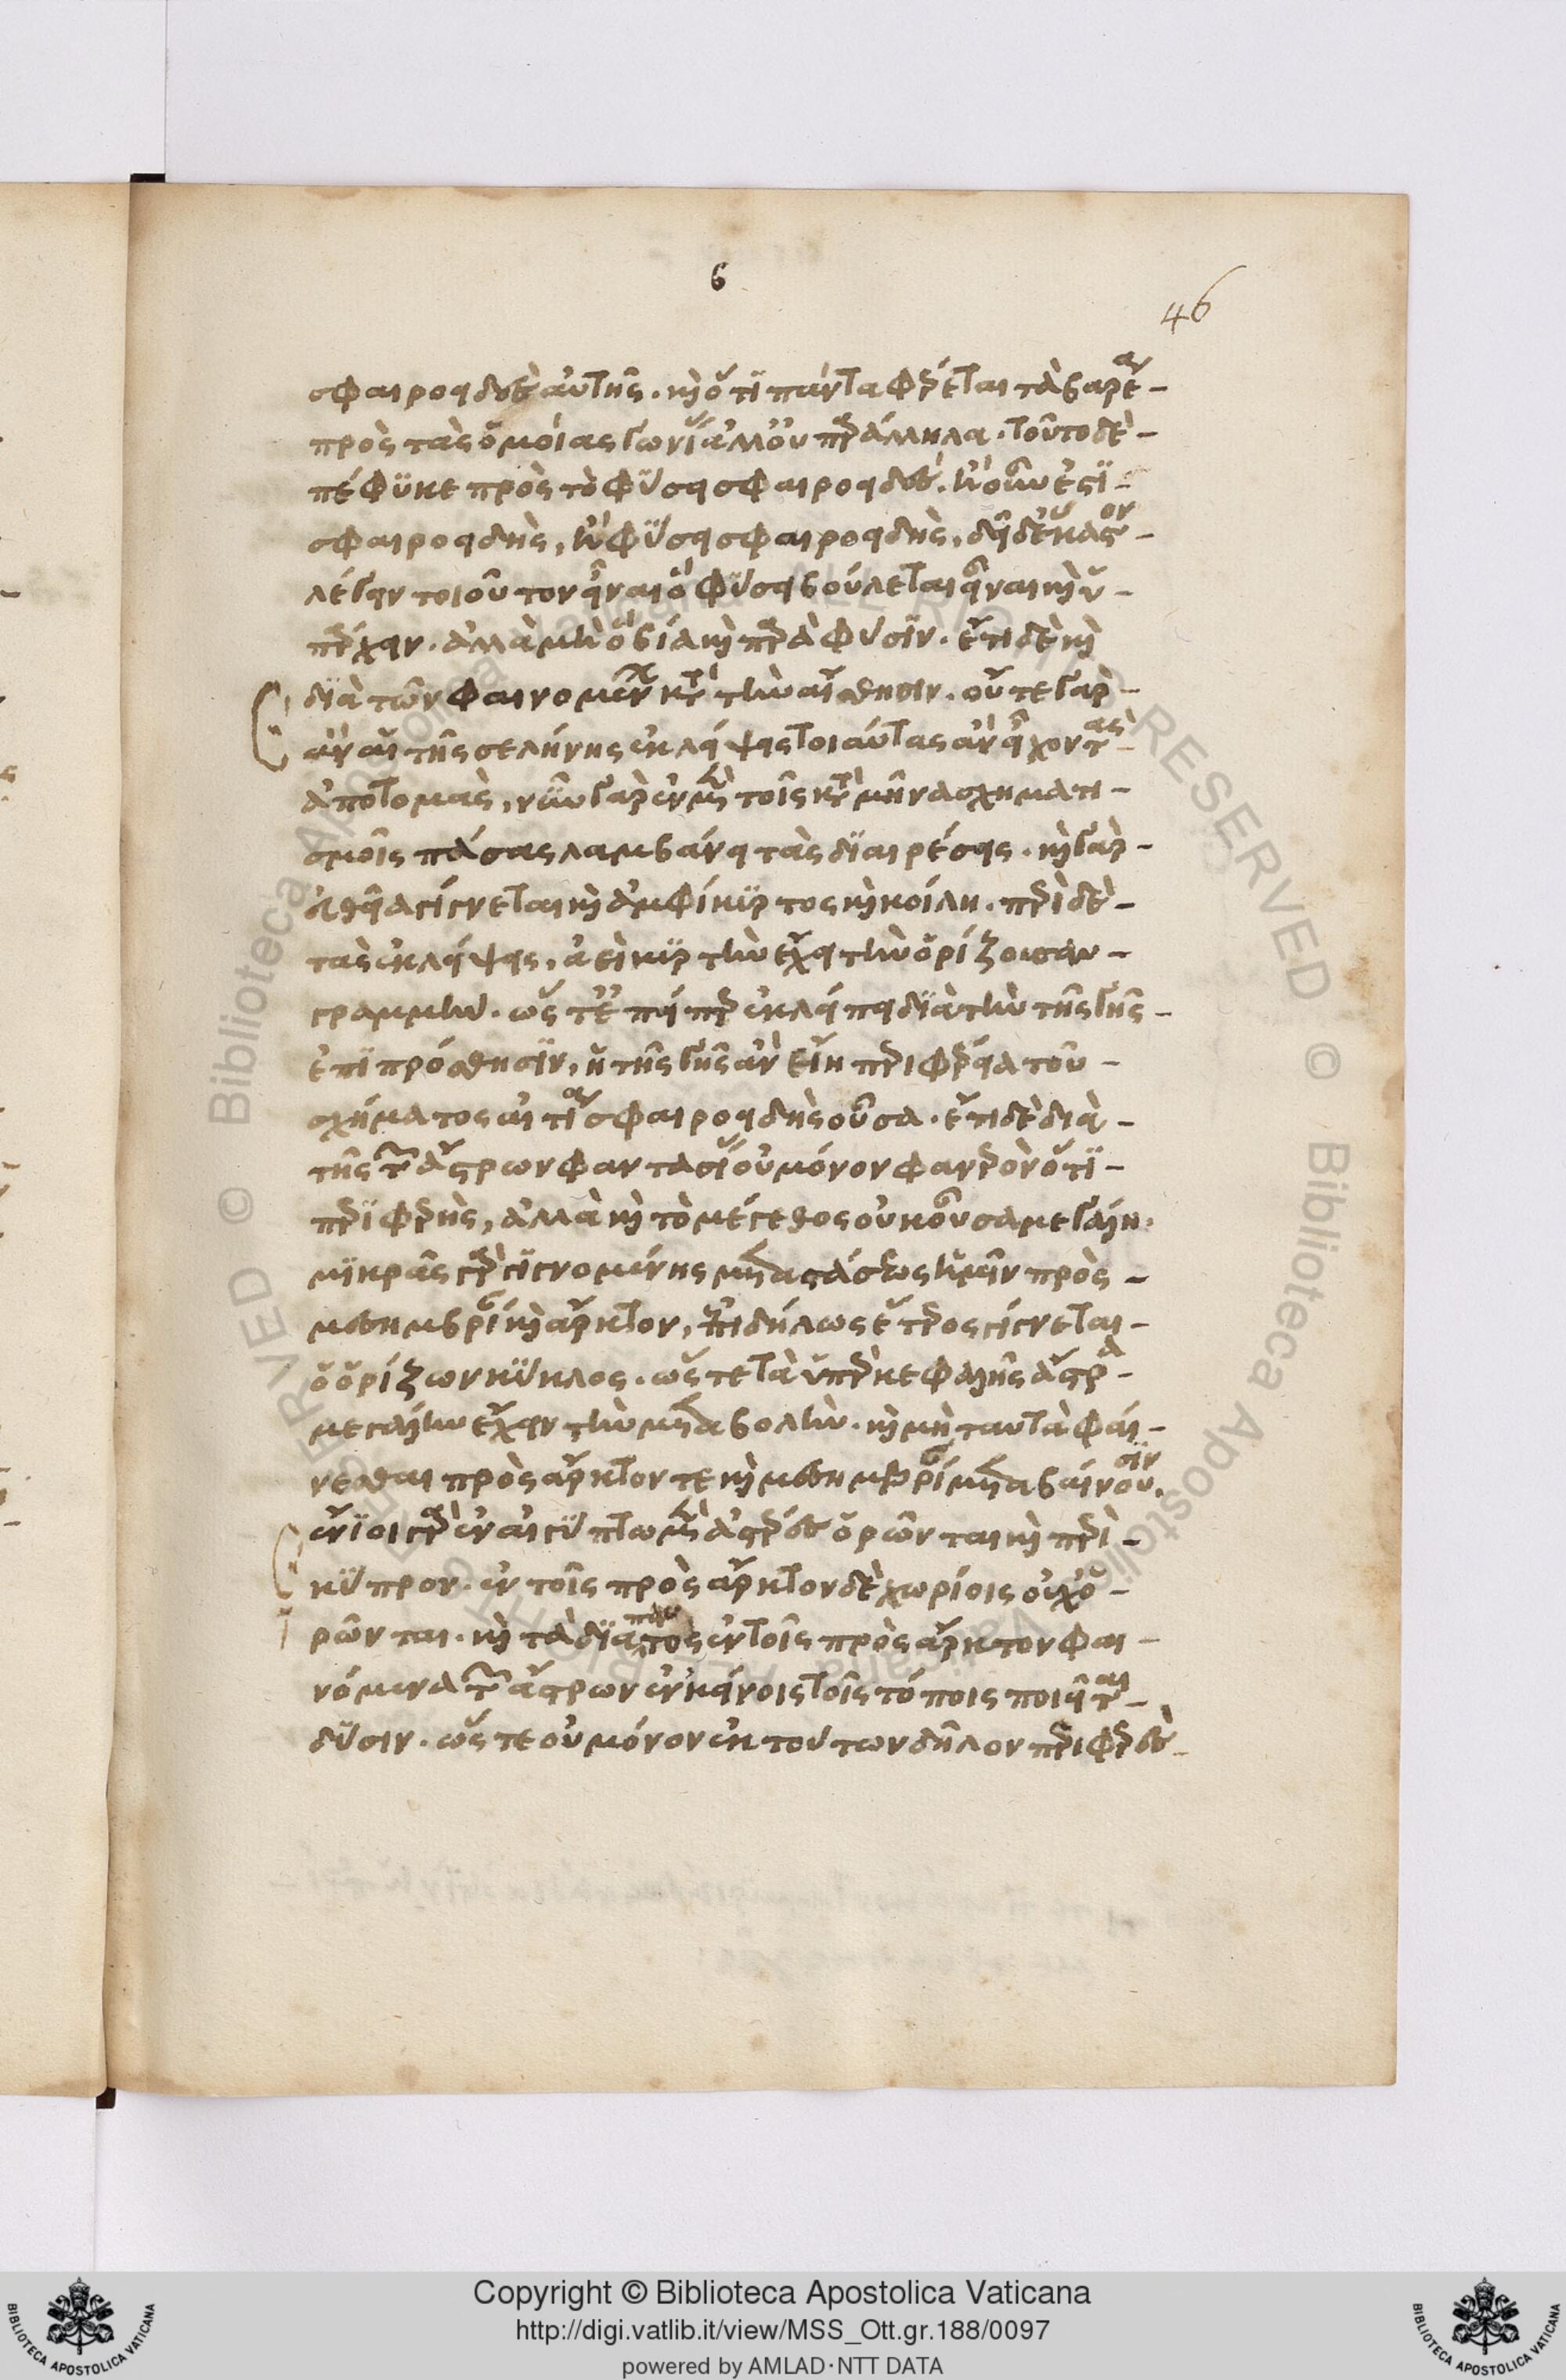 6
46
σφαιροειδὲς αὐτῆς. καὶ ὅτι πάντα φέρεται τὰ βαρέα
πρὸς τὰς ὁμοίας γωνίας ἀλλ' οὐ παράλληλα. τοῦτο δὲ
πέφυκε πρὸς τὸ φύσει σφαιροειδές. ἢ οὖν ἐστὶ
σφαιροειδὴς, ἢ φύσει σφαιροειδής. δεῖ δ' ἕκαστον
λέγειν τοιοῦτον εἶναι ὃ φύσει βούλεται εἶναι καὶ ὑ
πάρχειν. ἀλλὰ μὴ ὃ βίᾳ καὶ παρὰ φύσιν. ἔτι δὲ καὶ
διὰ τῶν φαινομένων κατὰ τὴν αἴσθησιν. οὔτε γὰρ
ἂν αἱ τῆς σελήνης ἐκλείψεις τοιαύτας ἂν εἶχον τὰς
ἀποτομάς, νῦν γὰρ ἐν μὲν τοῖς κατὰ μῆνα σχηματι
σμοῖς πάσας λαμβάνει τὰς διαιρέσεις. καὶ γὰρ
εὐθεῖα γίγνεται καὶ ἀμφίκυρτος καὶ κοίλη. περὶ δὲ
τὰς ἐκλείψεις, ἀεὶ κυρτὴν ἔχει τὴν ὁρίζουσαν
γραμμήν. ὥστ' ἐπείπερ ἐκλείπει διὰ τὴν τῆς γῆς
ἐπιπρόσθησιν, ἡ τῆς γῆς ἂν εἴη περιφέρεια τοῦ
σχήματος αἰτία σφαιροειδὴς οὖσα. ἔτι δὲ διὰ
τῆς τῶν ἄστρων φαντασίας οὐ μόνον φανερὸν ὅτι
περιφερής, ἀλλὰ καὶ τὸ μέγεθος οὐκ οὖσα μεγάλη.
μικρᾶς γὰρ γιγνομένης μεταστάσεως ἡμῖν πρὸς
μεσημβρίαν καὶ ἄρκτον, ἐπιδήλως ἕτερος γίγνεται
ὁ ὁρίζων κύκλος. ὥστε τὰ ὑπὲρ κεφαλῆς ἄστρα
μεγάλην ἔχειν τὴν μεταβολήν. καὶ μὴ ταὐτὰ φαί
νεσθαι πρὸς ἄρκτον τε καὶ μεσημβρίαν μεταβαίνουσιν.
ἔνιοι γὰρ ἐν αἰγύπτω μὲν ἀστέρες ὁρῶνται καὶ περὶ
κύπρον. ἐν τοῖς πρὸς ἄρκτον δὲ χωρίοις οὐχ ὁ
ρῶνται. καὶ τὰ διαπαντὸς ἐν τοῖς πρὸς ἄρκτον φαι
νόμενα τῶν ἄστρων ἐν κείνοις τοῖς τόποις ποιεῖται
δύσιν. ὥστε οὐ μόνον ἐκ τούτων δῆλον περιφερὲς
Copyright © Biblioteca Apostolica Vaticana
http://digi.vatlib.it/view/MSS_Ott.gr.188/0097
powered by AMLAD·NTT DATA